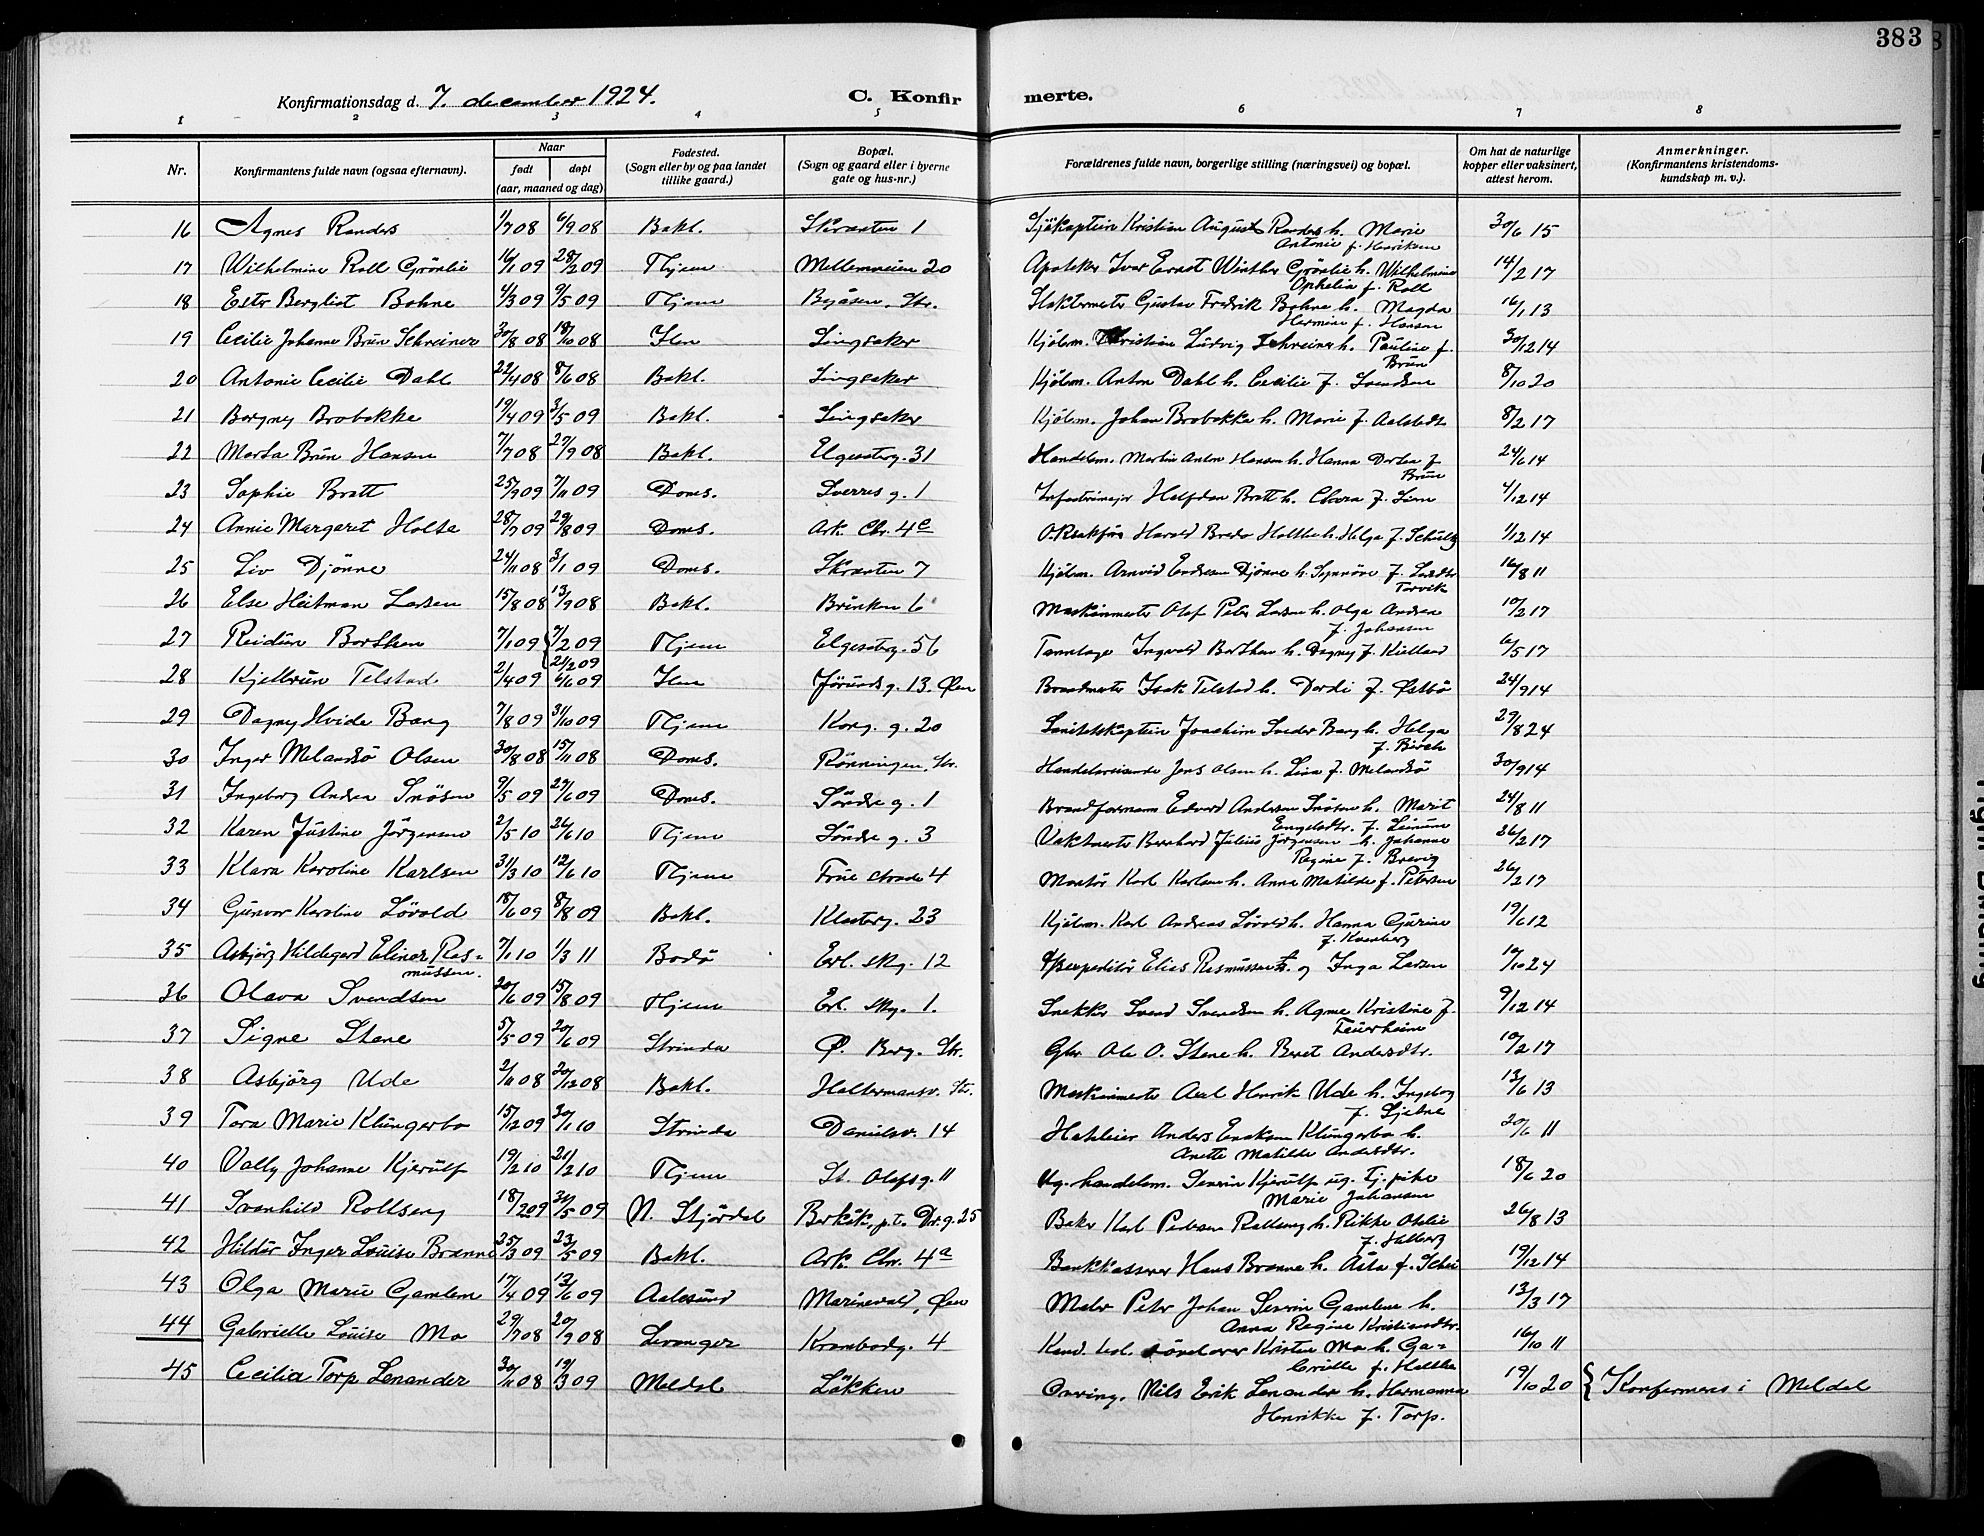 383
Konfirmationsdag d. 7. december 1924.
C. Konfirmerte.
1 2 3 4 5 6 7 8
Nr.
Konfirmantens fulde navn (ogsaa efternavn).
Naar
født døpt
(aar, maaned og dag)
Fødested.
(Sogn eller by og paa landet
tillike gaard.)
Bopæl.
(Sogn og gaard eller i byerne
gate og hus-nr.)
Forældrenes fulde navn, borgerlige stilling (næringsvei) og bopæl.
Om hat de naturlige
kopper eller vaksinert,
attest herom.
Anmerkninger.
(Konfirmantens kristendoms-
kundskap m. v.).
16 Agnes Randers 1/7 08 6/9 08 Bakl. 1 Sjökaptein Kristian August Randers h. Marie 30/6 15
Antonie f. Henriksen
17 Wilhelmine Roll Grönlie 16/1 09 28/2 09 Hjem Mellemveien 20 Apoteker Ivar Ernst Winther Grönlie h. Wilhelmine 14/2 17
Ophelia f. Roll
18 Ester Bergliot Bohne 4/3 09 9/5 09 Hjem Byåsen, Str. Slaktermester Gustav Fredrik Bohne h. Magda 16/1 13
Hermine f. Hansen
19 Cecilie Johanne Brun Schreiner 30/8 08 18/10 08 Ilen Singsaker Kjöbm. Kristian Ludvig Schreiner h. Pauline f. 30/12 14
Brun
20 Antonie Cecilie Dahl 22/4 08 8/6 08 Bakl. Singsaker Kjöbm. Anton Dahl h. Cecilie f. Svendsen 8/10 20
21 Borgny Brobakke 19/4 09 3/5 09 Bakl. Singsaker Kjöbm. Johan Brobakke h. Marie f. 8/2 17
22 Marta Brun Hansen 7/7 08 27/9 08 Bakl. Elgesetrg. 31 Handelsm. Martin Anton Hansen h. Hanna Dortea f. 24/6 14
Brun
23 Sophie Bratt 25/9 09 7/11 09 Doms. Sverres g. 1 Halfdan Bratt h. f. 4/12 14
24 Annie Margaret Holte 28/7 09 29/8 09 Doms. Ark. Chr. 4c O.R.sakfører Harald Bredo Holthe h. Helga f. Schulz 1/12 14
25 Liv Djönne 24/11 08 3/1 09 Doms. 7 Kjöbm. Arnvid Endresen Djönne h. Synnöve f. 16/8 11
Torvik
26 Else Heitman Larsen 15/8 08 13/9 08 Bakl. Brinken 6 Maskinmester Olaf Peter Larsen h. Olga Andrea 10/2 17
f. Johansen
27 Reidun Barthen 7/1 09 7/2 09 Hjem Elgesetrg. 56 Tannlæge Ingvald Barthen h. Dagny f. Kielland 6/5 17
21/2 09
28 Kjellrun Telstad 2/4 09 6/6 09 Ilen Jörunds g. 13. Øen Brandmester Isak Telstad h. Dordi f. 24/9 14
29 Dagny Hvide Bang 7/8 09 31/10 09 Hjem Kong. g. 20 Sanitetskaptein Joachim Bang h. Helga 29/8 24
f. Birch
30 Inger Melandsö Olsen 30/8 08 15/11 08 Doms. Rönningen, Str. Handelsreisende Jens Olsen h. Lisa f. Melandsö 30/9 14
31 Ingeborg Andrea Snösen 9/5 09 27/6 09 Doms. Söndre g. 1 Brandformann Edvard Andersen Snösen h. Marit 24/8 11
Engelsdtr. f. Leinum
32 Karen Justine Jörgensen 2/5 10 26/6 10 Hjem Söndre g. 3 Vaktmester Bernhard Julius Jörgensen h. Johanne 26/2 17
Regine f. Brevig
33 Klara Karoline Karlsen 31/3 10 12/6 10 Hjem Frue strade 4 Montör Karl Karlsen h. Anna Matilde f. Petersen 26/2 17
34 Gunvor Karoline Lövold 18/6 09 8/8 09 Bakl. Klosterg. 23 Kjöbm. Karl Andreas Lövold h. Hanna Gurine 19/6 12
f. Kvenberg
35 Asbjörg Hildegard Elinor Ras= 7/1 10 1/3 11 Bodö Erl. Skg. 12 Elias Rasmussen og Inga Larsen 10/10 24
mussen.
36 Olava Svendsen 20/6 09 15/8 09 Hjem Erl. Skg. 1. Snekker Svend Svendsen h. Agnes Kristine f. 9/12 14
37 Signe Stene 5/5 09 20/6 09 Strinda Ø. Berg. Str. Gbr. Ole O. Stene h. Beret Andersdtr. 10/2 17
38 Asbjörg Ude 2/11 08 20/12 08 Bakl. Haltermansv. Str. Maskinmester Axel Henrik Ude h. Ingeborg 13/6 13
f. Gjelme
39 Tora Marie Klungerbo 15/12 09 30/1 10 Strinda Danielsv. 14 Anders Eriksen Klungerbo h. 20/6 11
Anette Matilde Andersdtr.
40 Vally Johanne Kjerulf 19/2 10 21/2 10 Hjem St. Olafsg. 11 Ug. handelsm. Severin Kjerulf ug. tj. pike 18/6 20
Marie Johansen
41 Svanhild Rollseng 18/2 09 31/5 09 N. Stjördal Berkåk, p.t. Dr.g. 25 Baker Karl Pedersen Rollseng h. Rikke Otelie 26/8 13
f. Helberg
42 Hildur Inger Louise Brænne 25/3 09 23/5 09 Bakl. Ark. Chr. 4a Bankkasserer Hans Brænne h. Åsta f. Schei 19/12 14
43 Olga Marie Gamlem 17/4 09 13/6 09 Aalesund Marinevold, Øen Maler Peter Johan Severin Gamlem h. 13/3 17
Anna Regine Kristiansdtr.
44 Gabrielle Louise Mo 29/7 08 20/9 08 Levanger Krambodg. 4 Kand. teol. Kristen Mo h. Ga= 16/10 11
brielle f. Holthe
45 Cecilia Torp Lenander 30/11 08 19/3 09 Meldal Lökken Overing. Nils Erik Lenander h. Hermanna 19/10 20 { Konfirmeres i Meldal
Henrikke f. Torp.